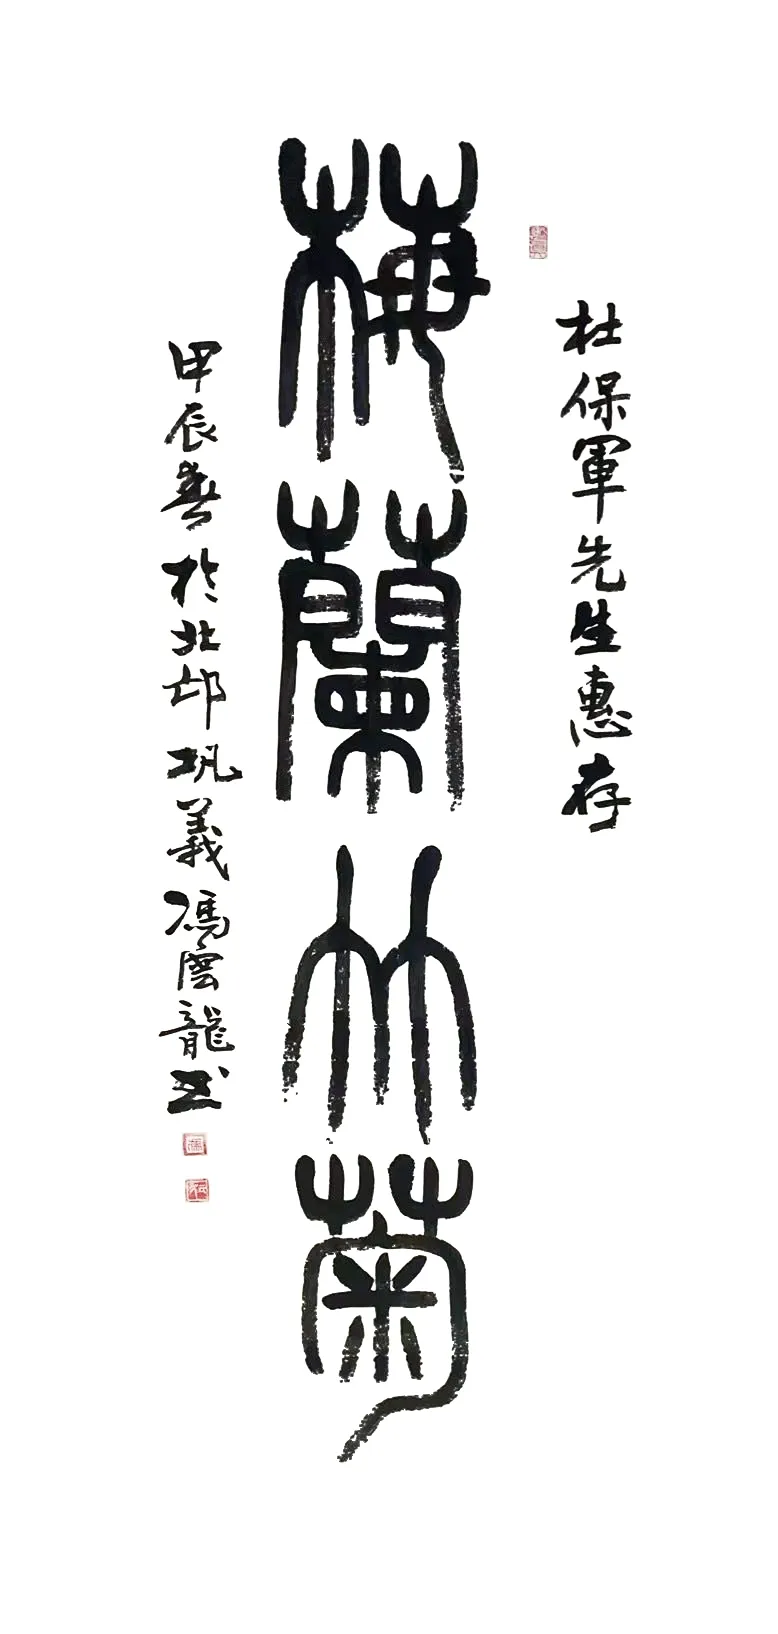 杜保軍先生惠存
梅蘭竹菊
甲辰春於北邙巩義馮雲龍書